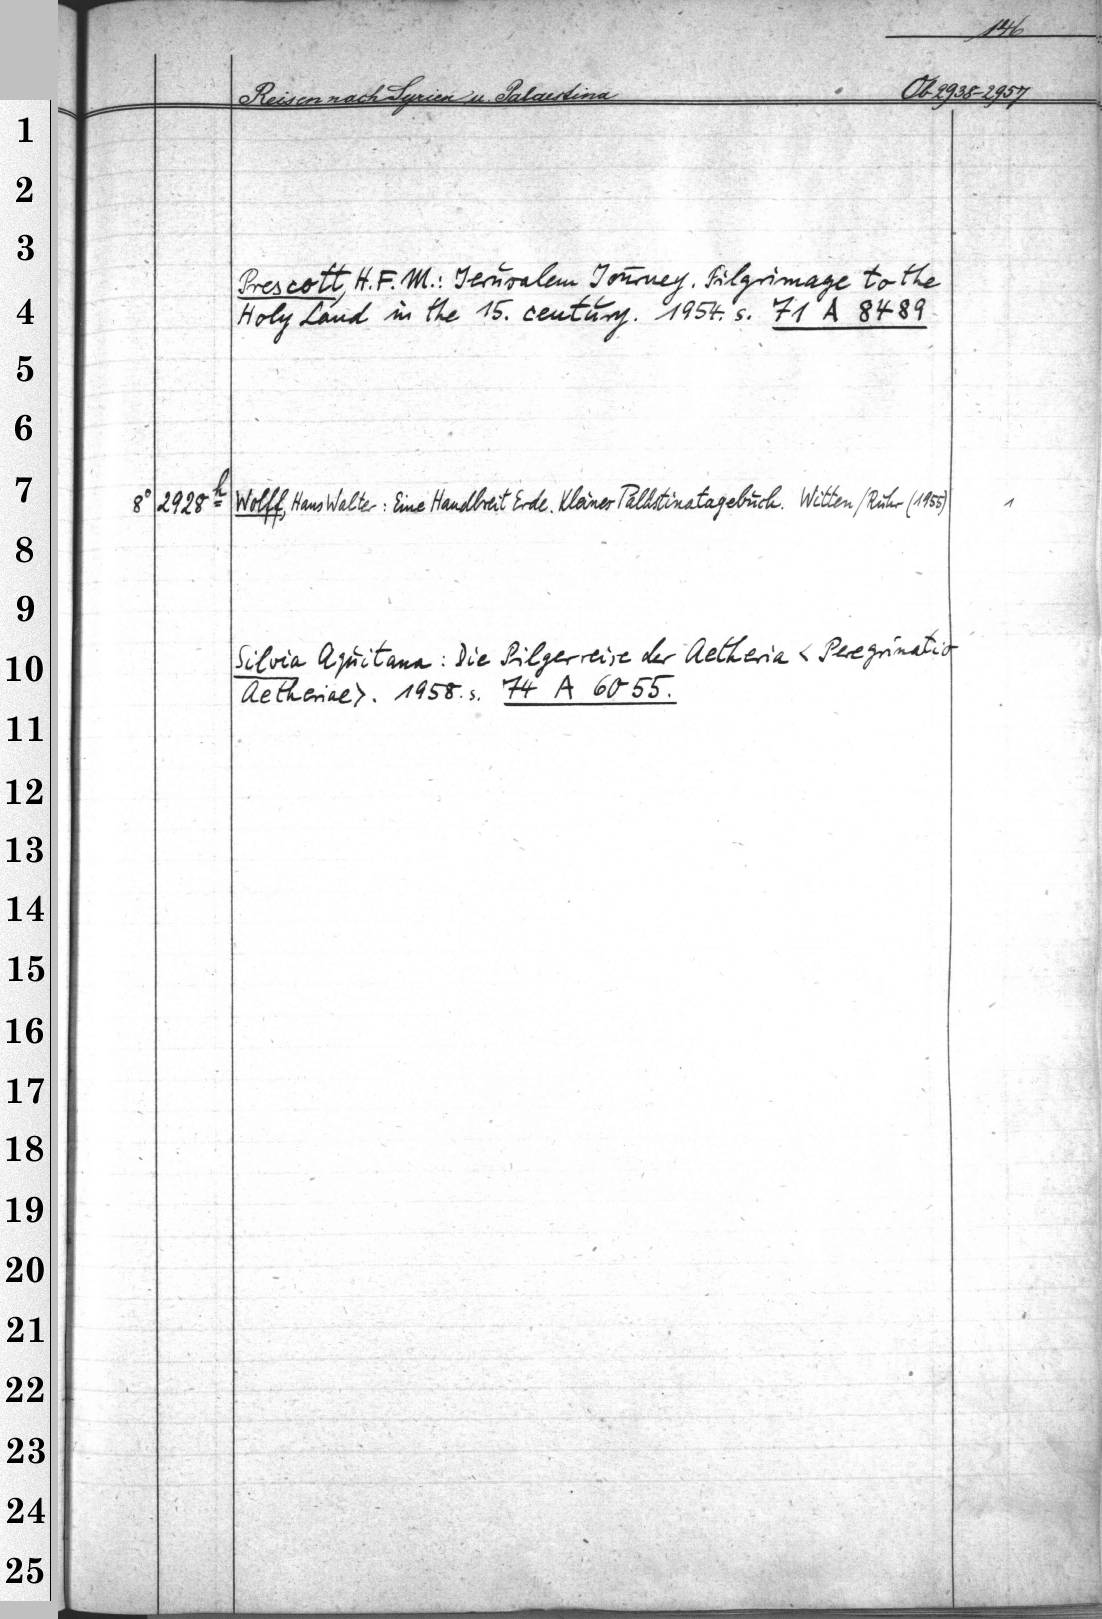 146
Reisen nach Syrien u. Palaestina Ob 2938-2957
1
2
3
Prescott, H.F.M.: Jerusalem Journey. Pilgrimage to the
4 Holy Land in the 15. century. 1954. s. 71 A 8489
5
6
7 8° 2928 h Wolff, Hans Walter: Eine Handbreit Erde. Kleines Palästinatagebuch. Witten/Ruhr (1955) 1
8
9
10 Silvia Aquitana: Die Pilgerreise der Aetheria < Peregrinatio
Aetheriae>. 1958. s. 74 A 6055.
11
12
13
14
15
16
17
18
19
20
21
22
23
24
25